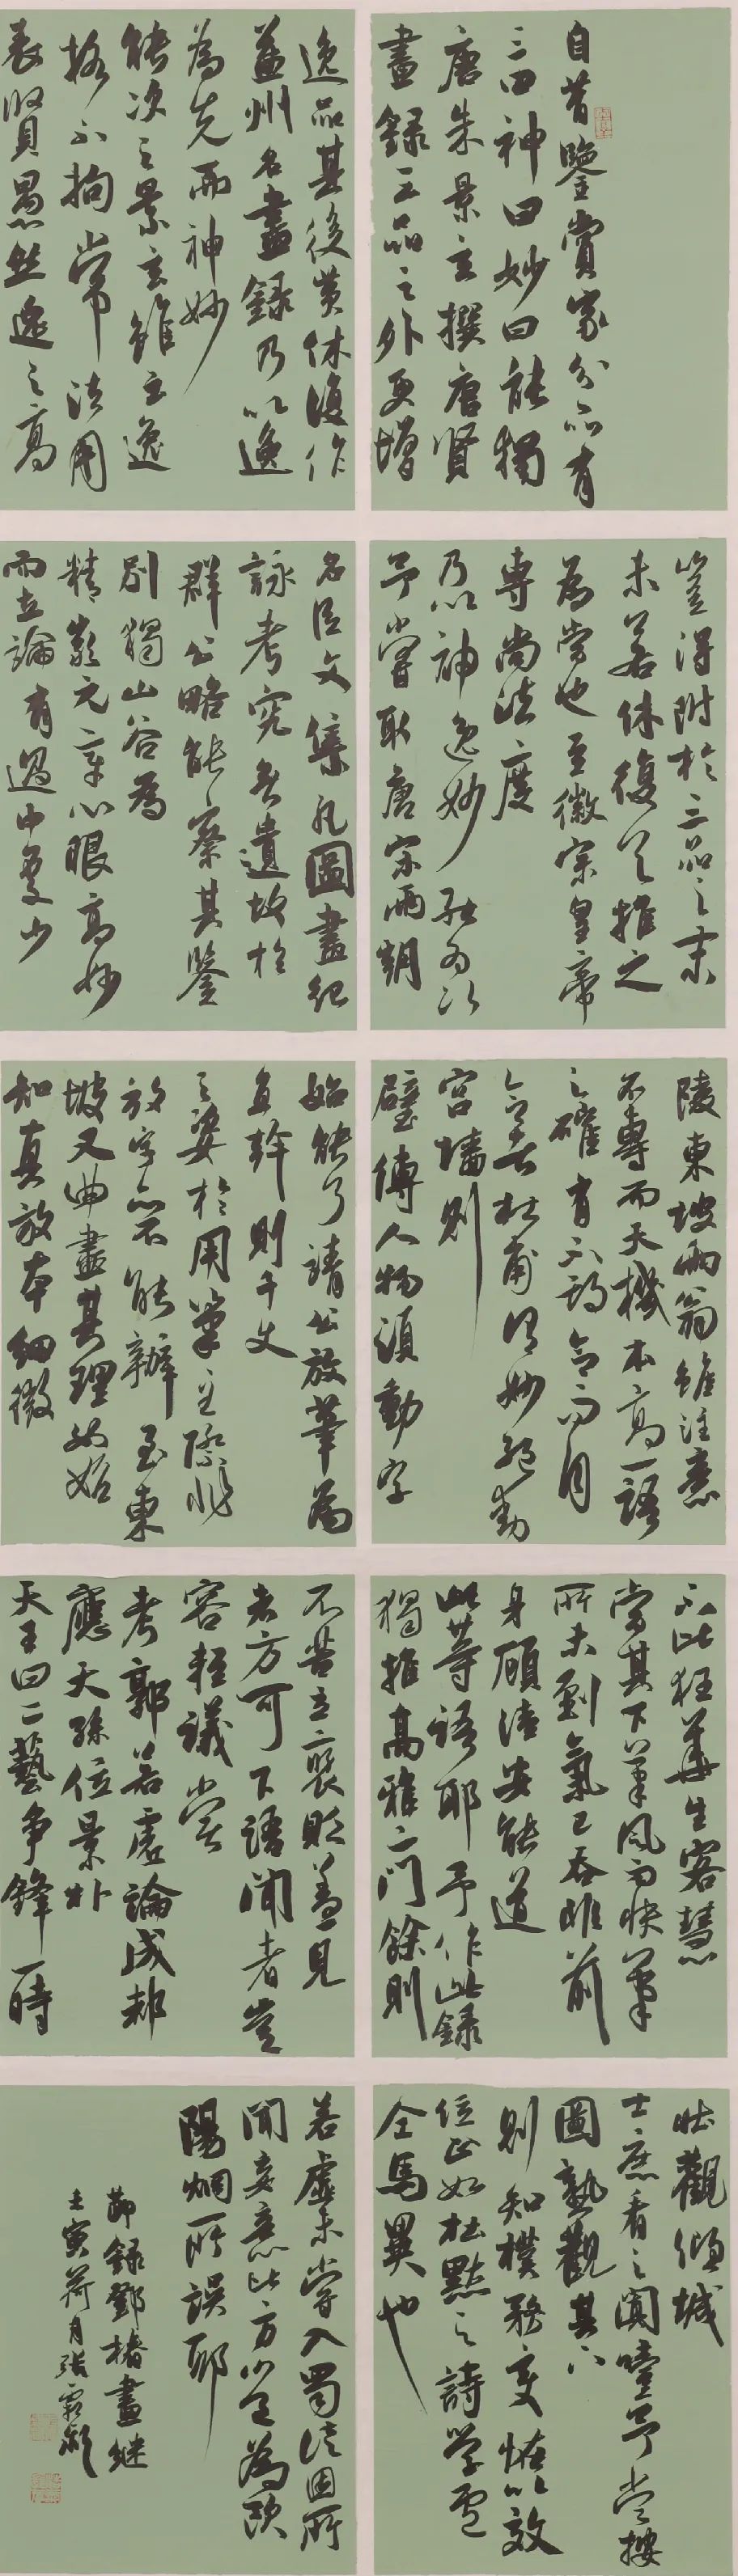 自昔鑒賞家分品有
三曰神曰妙曰能獨
唐朱景玄撰唐賢
畫錄三品之外更增
逸品其後黃休復作
益州名畫錄乃以逸
為先而神妙
能次之景玄雖云逸
格不拘常法用
表賢愚然逸之高
豈得附於三品之末
未若休復首推之
為當也至徽宗皇帝
專尚法度
乃以神逸妙能為次
予嘗取唐宋兩朝
名臣文集凡圖畫紀
詠考究無遺故於
群公略能察其鑒
別獨山谷為
精嚴元章心眼高妙
而立論有過中處少
陵東坡兩翁雖注意
不專而天機本高一語
之確有不期合而自
合者杜甫得妙絕動
宮墻則
壁傳人物須動字
始能了請公放筆為
直幹則千丈
之姿於用筆之際非
放字亦不能辦至東
坡又曲盡其理如始
知真放本細微
不比狂華生客慧
當其下筆風雨快筆
所未到氣已吞非前
身顧陸安能道
此等語耶予作此錄
獨推高雅二門餘則
不苦立褒貶蓋見
者方可下語聞者豈
容輕議嘗
考郭若虛論成都
應天孫位景朴
天王曰二藝爭鋒一時
壯觀傾城
士庶看之闐噎予嘗按
圖熟觀其下
則知樸務變怪以效
位正如杜默之詩學盧
仝馬異也
若虛未嘗入蜀徒因所
聞妄意比方以為歐
陽烱所誤耶
節錄鄧椿畫繼
壬寅荷月張